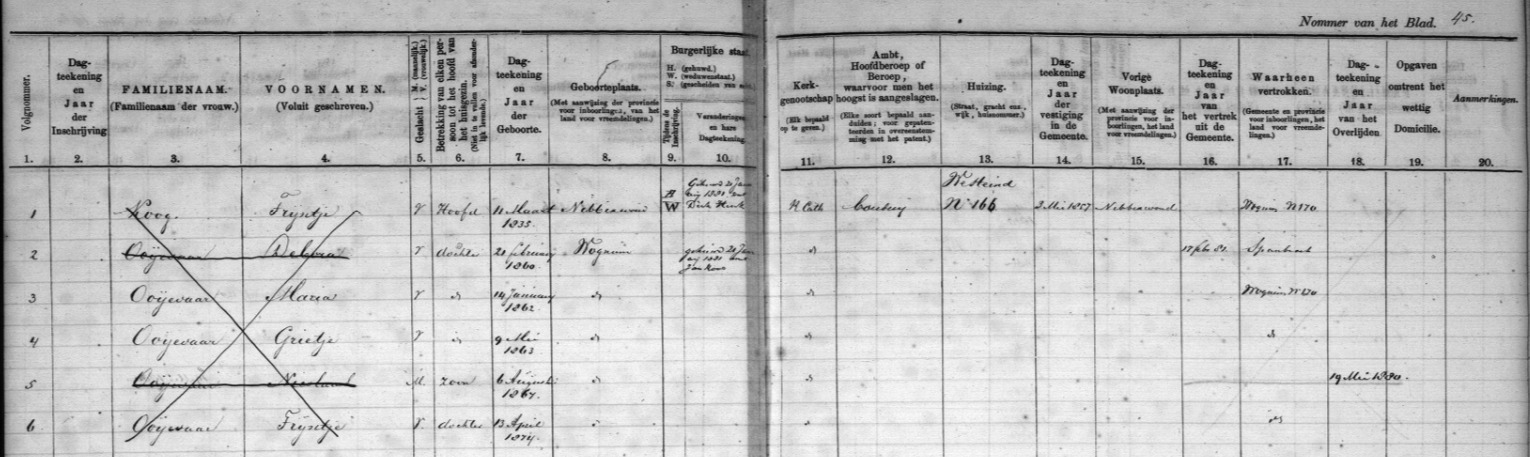 Nommer van het Blad. 45.
Volgnommer.
Dag-
teekening
en
Jaar
der
Inschrijving
FAMILIENAAM.
(Familienaam der vrouw.)
VOORNAMEN.
(Voluit geschreven.)
Geslacht
M. (mannelijk.)
V. (vrouwelijk.)
Betrekking van elken per-
soon tot het hoofd van
het huisgezin.
Dag-
teekening
en
Jaar
der
Geboorte.
Geboorteplaats.
(Met aanwijzing der provincie
voor inboorlingen, van het
land voor vreemdelingen.)
Burgerlijke staat.
H. (gehuwd.)
W. (weduwenstaat.)
S. (gescheiden van
Tijdens de
Inschrijving.
Veranderingen
en hare
Dagteekening.
Kerk-
genootschap
(Elk bepaald
op te geven.)
Ambt,
Hoofdberoep of
Beroep,
waarvoor men het
hoogst is aangeslagen.
(Elke soort bepaald aan-
duiden; voor gepaten-
teerden in overeenstem-
ming met het patent.)
Huizing.
(Straat, gracht enz.,
wijk, huisnommer.)
Dag-
teekening
en
Jaar
der
vestiging
in de
Gemeente.
Vorige
Woonplaats.
(Met aanwijzing der
provincie voor in-
boorlingen, het land
voor vreemdelingen.)
Dag-
teekening
en
Jaar
van
het vertrek
uit de
Gemeente.
Waarheen
vertrokken.
(Gemeente en provincie
voor inboorlingen, het
land voor vreemde-
lingen.)
Dag-
teekening
en
Jaar
van het
Overlijden.
Opgaven
omtrent het
wettig
Domicilie.
Aanmerkingen.
1. 2. 3. 4. 5. 6. 7. 8. 9. 10. 11. 12. 13. 14. 15. 16. 17. 18. 19. 20.
1 Koog. Trijntje V Hoofd 11 Maart 1835. Nibbixwoud H W Gehuwd 20 Jan 1881 Dirk R Cath Westeind No 166 3 Mei 1857 Nibbixwoud Wognum N 170
2 Ooijevaar V dochter 21 februarij 1860. Wognum gehuwd 20 Jan 1881 Jan Koos do 17 feb 81. Spanbroek
3 Ooijevaar Maria V do 14 Januarij 1862. do do Wognum N 170
4 Ooijevaar Grietje V do 9 Mei 1863 do do do
5 Ooijevaar Nicolaas M zoon 6 Augustus 1867. do do 19 Mei 1880.
6 Ooijevaar Trijntje V dochter 13 April 1874. do